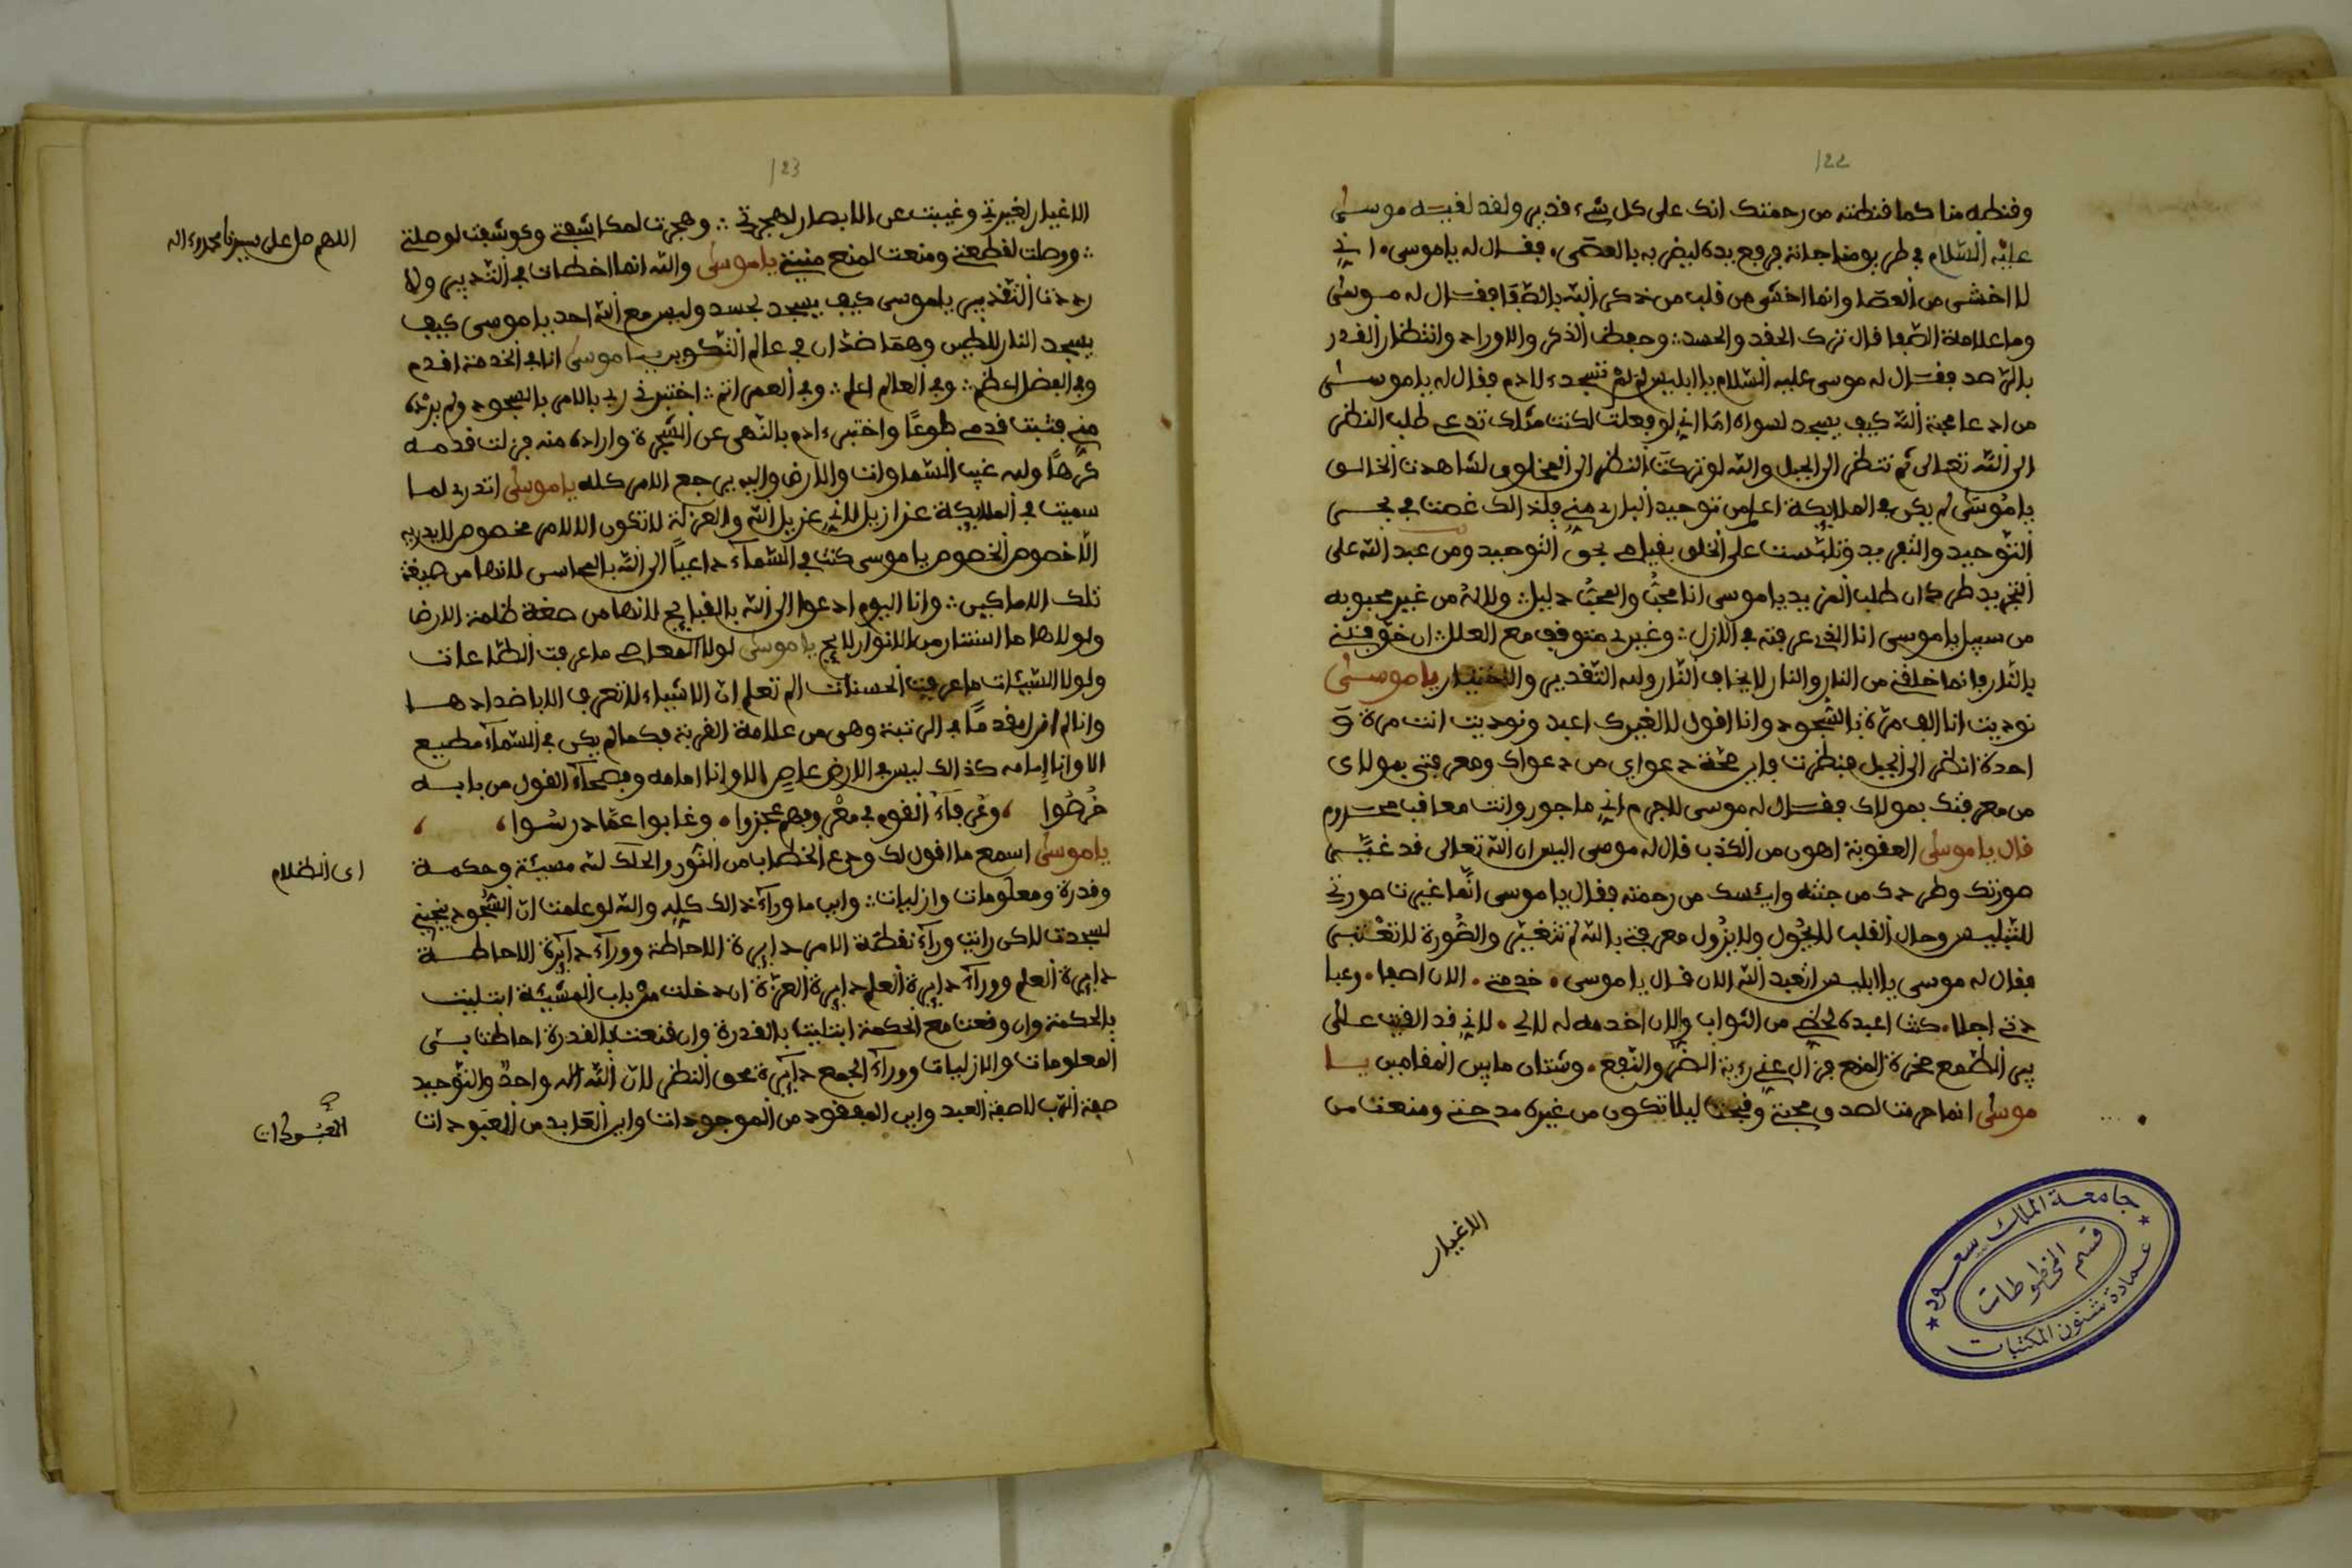 122
وقنطه منا كما قنطته من رحمتك انك على كل شيء قدير ولقد لقيه موسى
عليه السلام في طريق مناجاته فرفع يده ليضربه بالعصى، فقال له ياموسى، اني
لا اخشى من العصا وانما اخشى من قلب من ذكر الله بالصفا فقال له موسى
وما علامة الصفا قال ترك الحقد والحسد وحفظ الذكر والاوراد وانتظار القدر
بالرصد فقال له موسى عليه السلام يا ابليس لم لم تسجد لادم فقال له ياموسى
من ادعا محبة الله كيف يسجد لسواه اما اني لو فعلت لكنت مثلك تدعي طلب النظر
الى الله تعالى ثم تنظر الى الجبل والله لو تركت النظر الى المخلوق لشاهدت الخالق
ياموسى لم يكن في الملايكة اعلم من توحيد الباري مني فلذالك غصت في بحر
التوحيد والتفريد وتلبست على الخلق بقيامي بحق التوحيد ومن عبد الله على
التجريد طرد ان طلب المزيد ياموسى انا محب والمحب دليل ولاله من غير محبوبه
من سبيل ياموسى انا الذي عرفته في الازل وغيري متوقف مع العلل ان خوفني
بالنار فانما خلقني من النار والنار لا يخاف النار وله التقدير والاختيار ياموسى
نوديت انا الف مرة بالسجود وانا اقول لا لغيرك اعبد ونوديت انت مرة و
احدة انظر الى الجبل فنظرت فاين صحة دعواي من دعواك ومعرفتي بمولاى
من معرفتك بمولاك فقال له موسى لاجرم اني ماجور وانت معاقب محروم
قال ياموسى العقوبة اهون من الكذب قال له موسى اليس ان الله تعالى قد غير
صورتك وطردك من جنته وايئسك من رحمته فقال ياموسى انما غيرت صورتي
للتلبيس وحال القلب لا يحول ولا يزول معرفتي بالله لم تتغير والصورة لا تعتبر
فقال له موسى يا ابليس اتعبد الله الان قال ياموسى، خدمتي، الان اصفا، وعبا
دتي اجلا، كنت اعبده لحظي من الثواب والان اخدمه له لا لي، لاني قد القيت على
بير الطمع صخرة المنع فزال عني رءية الضر والنفع، وشتان مابين المقامين يا
موسى انما حرمت لصدق محبتي وقبحت ليلا تكون من غيره مدحتي ومنعت من
الاغيار
جامعة الملك سعود
قسم المخطوطات
عمادة شئون المكتبات
123
الاغيار لغيرتي وغيبت عن الابصار لهجرتي وهجرت لمكاشفتي وكوشفت لوصلتي
ووصلت لقطيعتي ومنعت لمنع منيتي ياموسى والله انما اخطات في التدبير ولا
رددت التقدير ياموسى كيف يسجد لجسد وليس مع الله احد ياموسى كيف
يسجد النار للطين وهما ضدان في عالم التكوين ياموسى انا في الخدمة اقدم
وفي الفضل اعظم وفي العالم اعلم وفي العمر اتم اختبرني ربي بالامر بالسجود ولم يرده
مني فثبت قدمي طوعا واختبرءادم بالنهى عن الشجرة واراده منه فزلت قدمه
كرها وله غيب السماوات والارض واليه يرجع الامر كله ياموسى اتدري لما
سميت في الملايكة عزازيل لاني عزيل الله والعزلة لا تكون الا لامر مخصوص لا يدريه
الا خصوص الخصوص ياموسى كنت في السماء داعيا الى الله بالمحاسن لانها من صبغة
تلك الاماكين وانا اليوم ادعوا الى الله بالقبايح لانها من صفة ظلمة الارض
ولولاها ما استنار من الانوار لايح ياموسى لولا المعاصي ما عرفت الطاعات
ولولا السيئات ما عرفت الحسنات الم تعلم ان الاشياء لا تعرف الا باضدادها
وانا لم ازل مقدما في الرتبة وهى من علامة القربة فكما لم يكن في السماء مطيع
الا وانا امامه كذالك ليس في الارض عاص الا وانا امامه وفصحاء القول من بابه
خرصوا ، وعرفاء القوم في معرفهم عجزوا، وغابوا عما درسوا،
ياموسى اسمع ما اقول لك ودع الخطاب من النور والحلك لله مشيئة وحكمة
وقدرة ومعلومات وازليات واين ما وراء ذالك كله والله لو علمت ان السجود ينجيني
لسجدت لاكن رايت وراء نقطة الامر دايرة الاحاطة ووراء دايرة الاحاطة
دايرة العلم ووراء دايرة العلم دايرة العزة ان دخلت من باب المشيئة ابتليت
بالحكمة وان وقعت مع الحكمة ابتليت بالقدرة وان قنعت بالقدرة احاطت بسر
المعلومات والازليات ووراء الجمع دايرة محق النظر لان الله اله واحد والتوحيد
صفة الرب لا صفة العبد واين المفقود من الموجودات واين العابد من المعبودات
اللهم صل على سيدنا محمد وءاله
اى الظلام